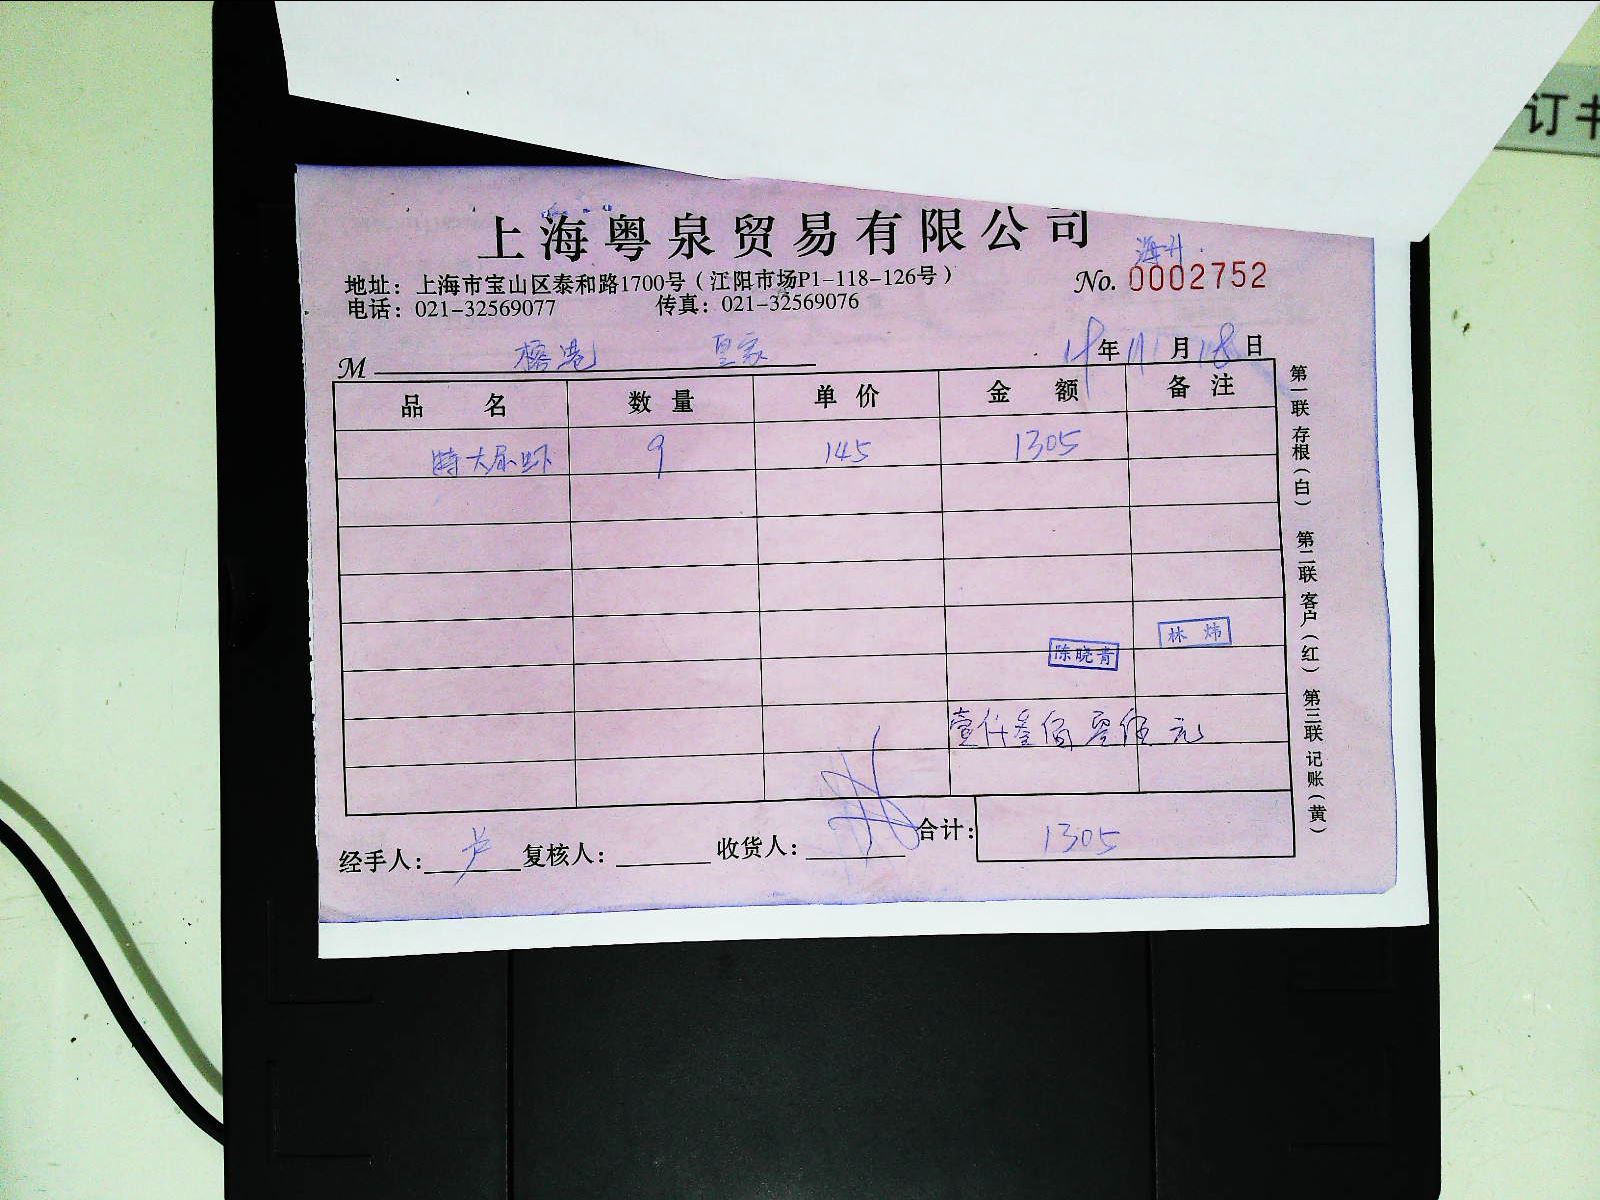 订书
上海粤泉贸易有限公司
海升
地址：上海市宝山区泰和路1700号（江阳市场P1-118-126号）
No. 0002752
电话：021-32569077 传真：021-32569076
M 榕港 皇家
年11月18日
品名 数量 单价 金额 备注
特大尿虾 9 145 1305
林炜
陈晓青
壹仟叁佰零伍元
合计：1305
经手人：卢 复核人： 收货人：
第一联 存根（白） 第二联 客户（红） 第三联 记账（黄）